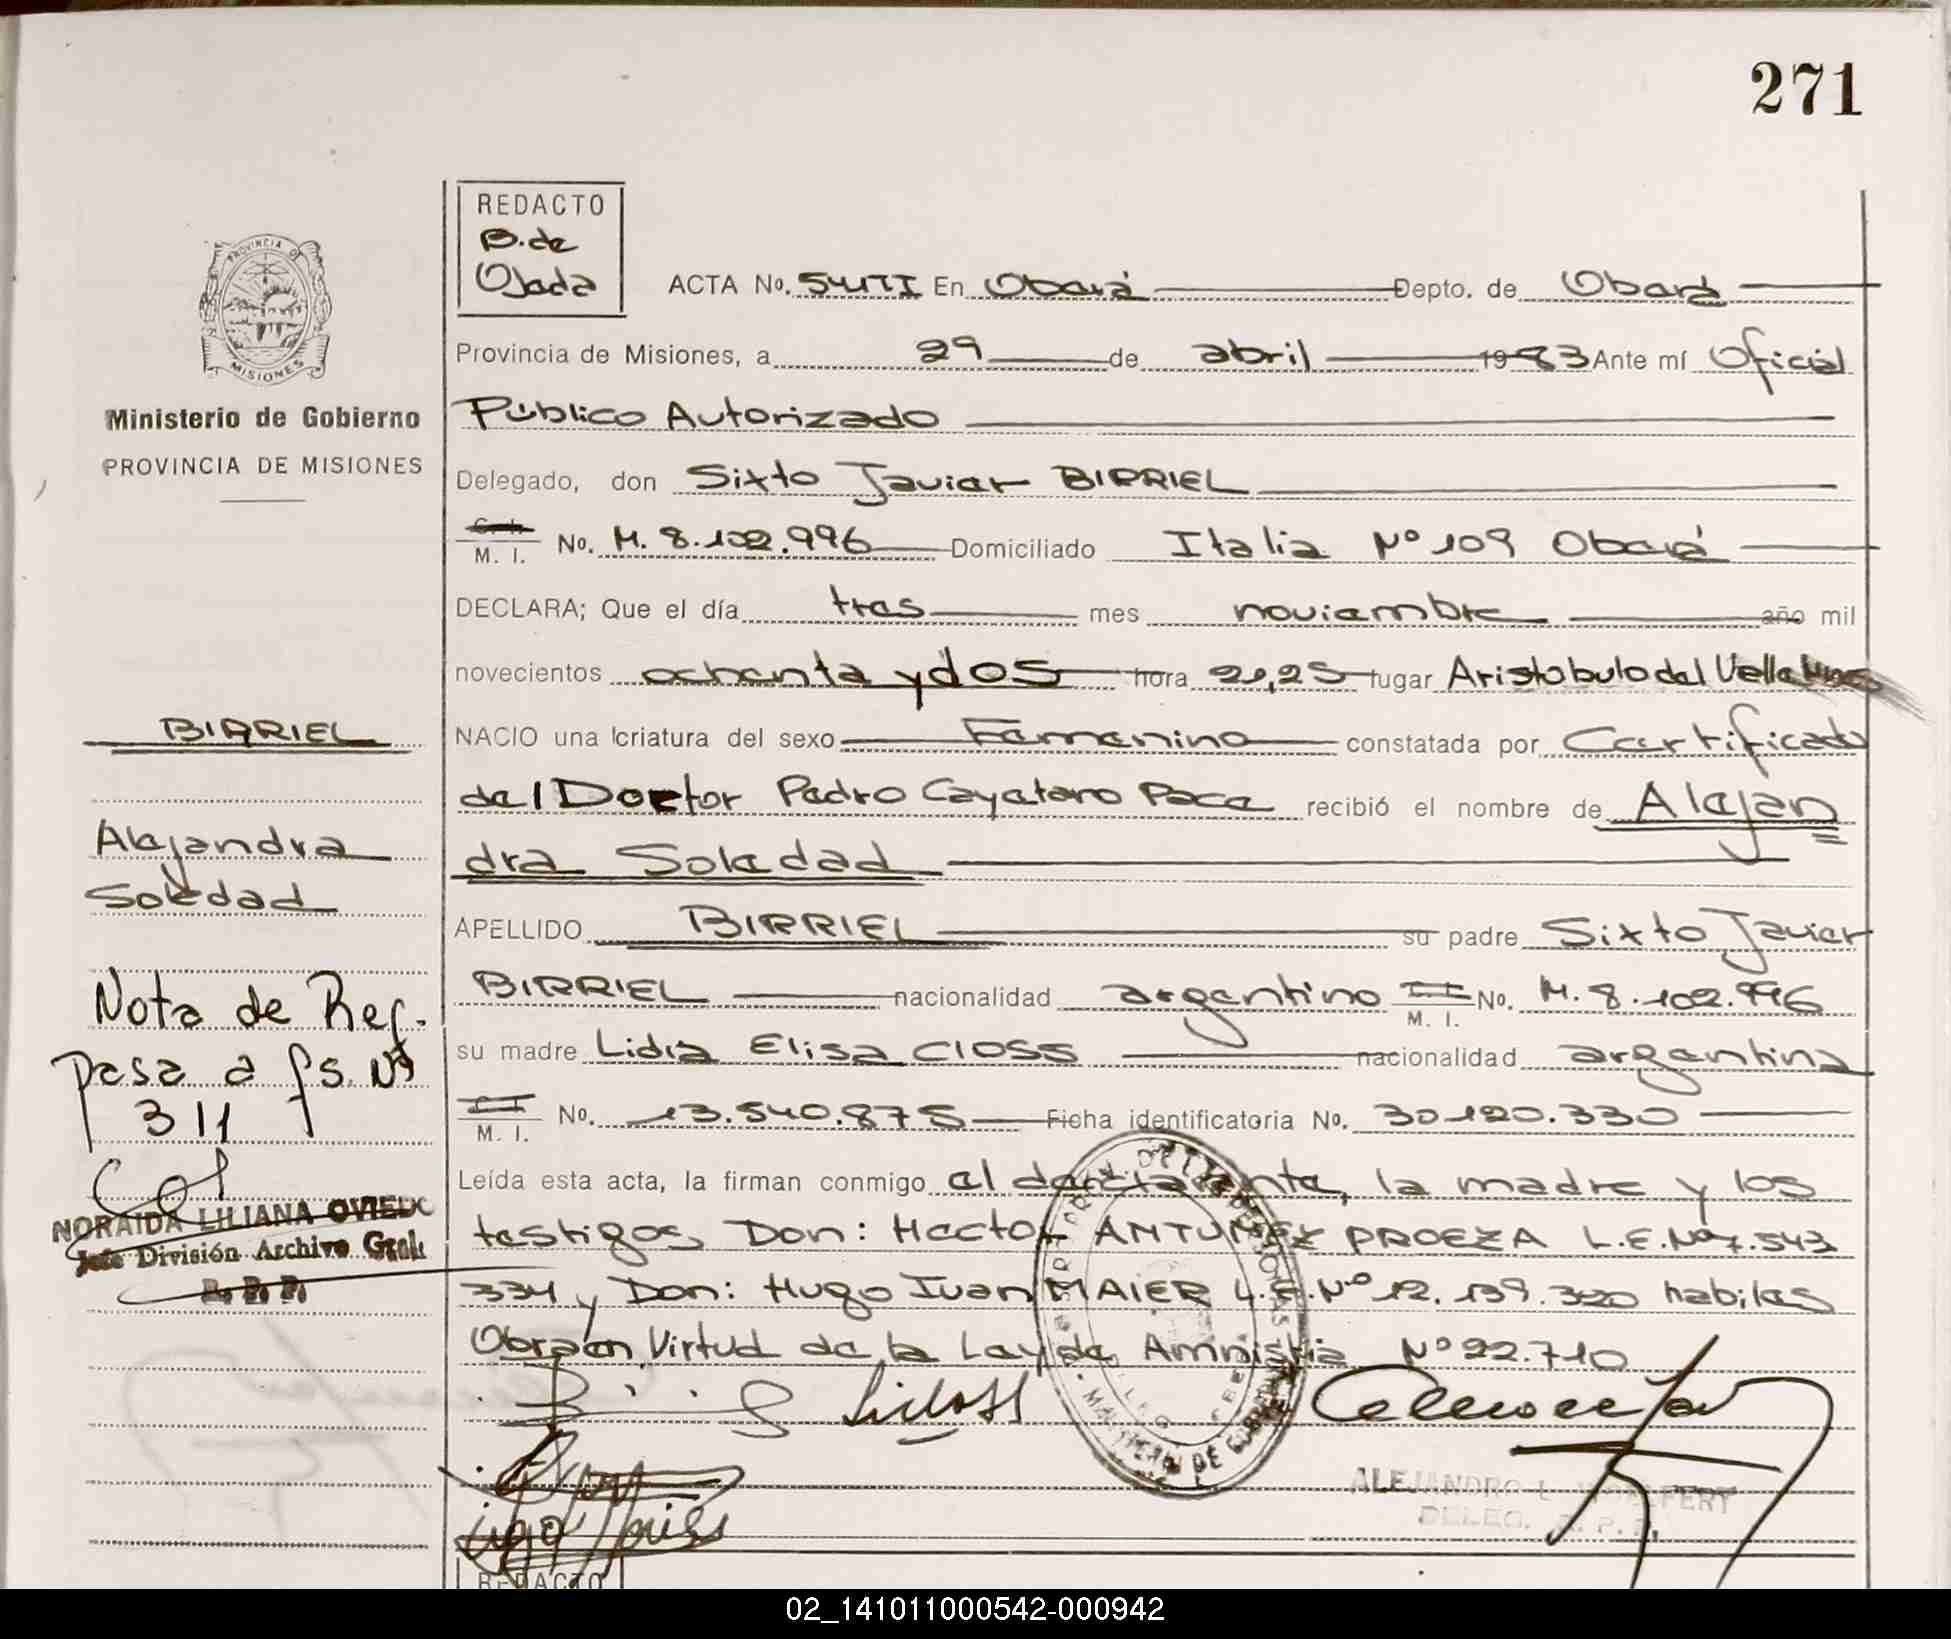 271
REDACTO
B. de
Ojeda
ACTA No. 541 TI En Oberá Depto. de Oberá
Provincia de Misiones, a 29 de abril 1983 Ante mí Oficial
Público Autorizado
Delegado, don Sixto Javier BIRRIEL
M. I. No. M. 8.102.996 Domiciliado Italia Nº 109 Oberá
DECLARA; Que el día tres mes noviembre año mil
novecientos ochenta y dos hora 20,25 lugar Aristobulo del Valle Mnes
NACIO una criatura del sexo Femenino constatada por Certificado
del Doctor Pedro Cayetano recibió el nombre de Alejan
dra Soledad
APELLIDO BIRRIEL su padre Sixto Javier
BIRRIEL nacionalidad argentino M. I. No. M. 8.102.996
su madre Lidia Elisa CIOSS nacionalidad argentina
M. I. No. 13.540.875 Ficha identificatoria No. 30120.330
Leída esta acta, la firman conmigo el denunciante, la madre y los
testigos, Don: Hector ANTUNEZ PROEZA L.E. Nº 7.543
334 y Don: Hugo Juan MAIER Nº 12.139.320 habiles
Obra en Virtud de la Ley de Amnistia Nº 22.710
ALEJANDRO L.
DELEG. R. P. P.
PROVINCIA DE
MISIONES
Ministerio de Gobierno
PROVINCIA DE MISIONES
BIRRIEL
Alejandra
Soledad
Nota de Ref.
pasa a fs. Nº
311
NORAIDA LILIANA OVIEDO
Jefe División Archivo Gral.
R. P. P.
REDACTO
02_141011000542-000942